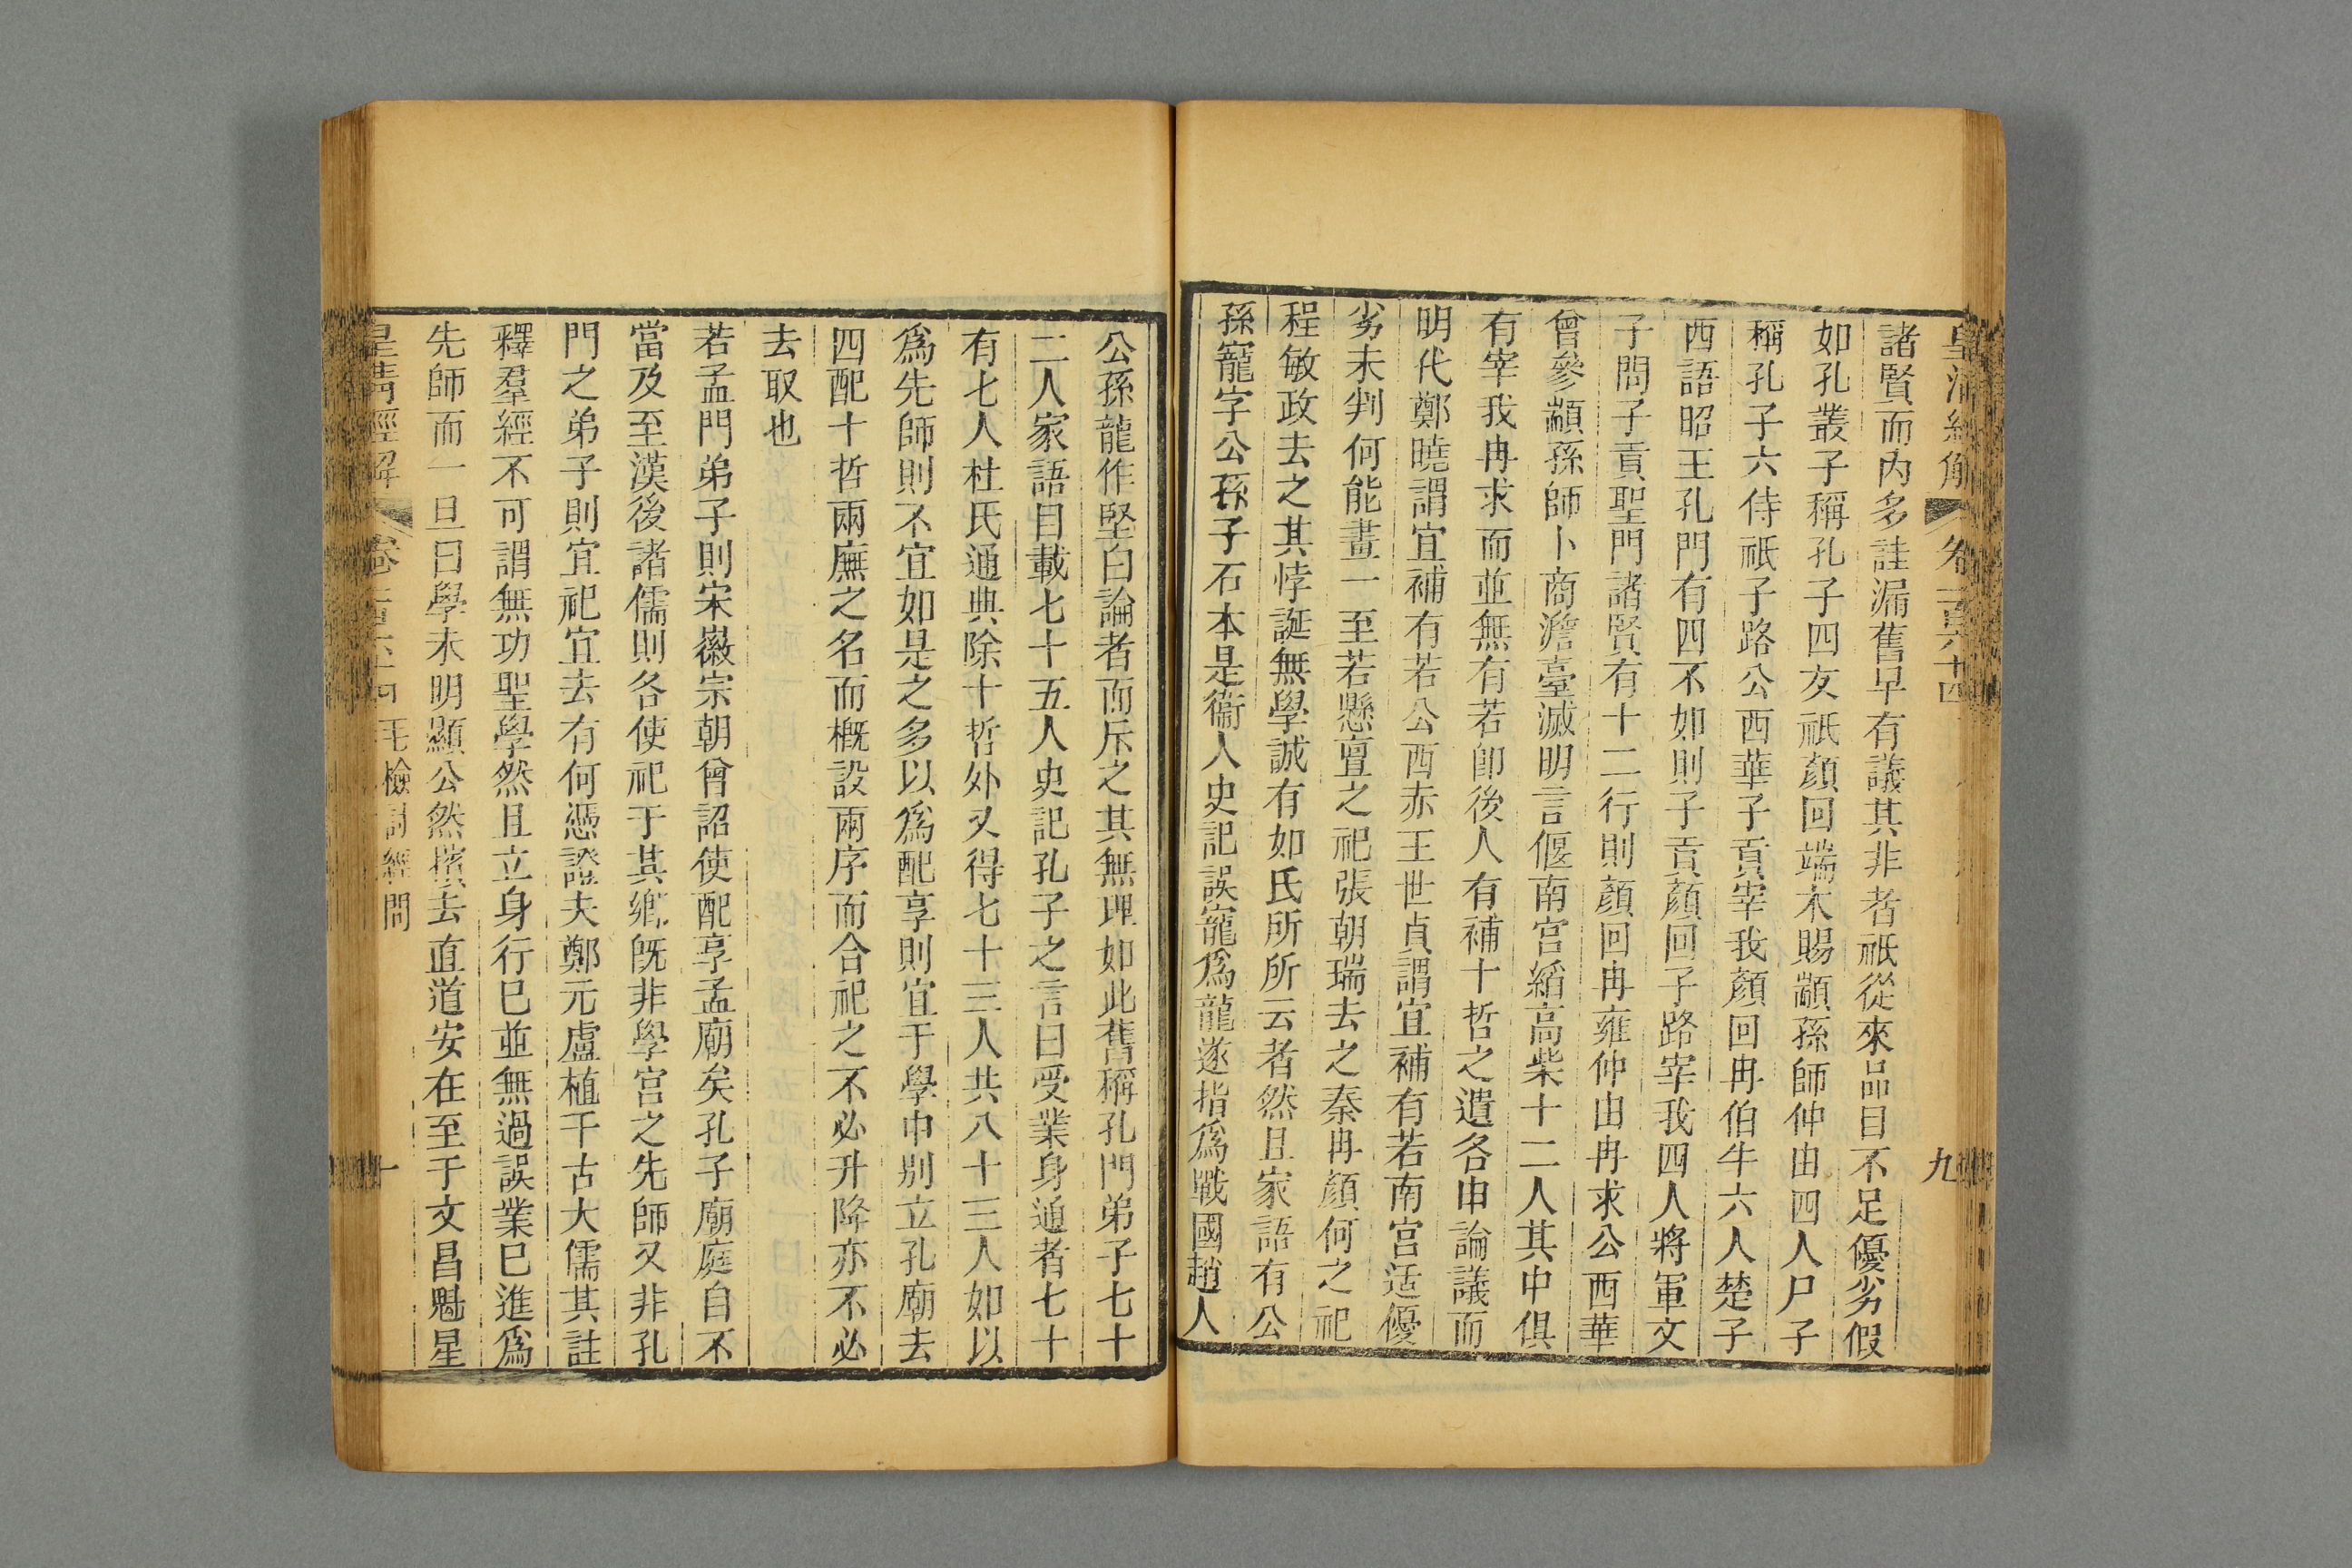 皇清經解 卷一百六十四 九
諸賢而內多註漏舊早有議其非者祇從來品目不足優劣假
如孔叢子稱孔子四友祇顏回端木賜顓孫師仲由四人尸子
稱孔子六侍祇子路公西華子貢宰我顏回冉伯牛六人楚子
西語昭王孔門有四不如則子貢顏回子路宰我四人將軍文
子問子貢聖門諸賢有十二行則顏回冉雍仲由冉求公西華
曾參顓孫師卜商澹臺滅明言偃南宮縚高柴十二人其中俱
有宰我冉求而並無有若卽後人有補十哲之遺各申論議而
明代鄭曉謂宜補有若公西赤王世貞謂宜補有若南宮适優
劣未判何能畫一至若懸亶之祀張朝瑞去之秦冉顏何之祀
程敏政去之其悖誕無學誠有如氏所所云者然且家語有公
孫寵字公孫子石本是衞人史記誤寵爲龍遂指爲戰國趙人
公孫龍作堅白論者而斥之其無理如此舊稱孔門弟子七十
二人家語目載七十五人史記孔子之言曰受業身通者七十
有七人杜氏通典除十哲外又得七十三人共八十三人如以
爲先師則不宜如是之多以爲配享則宜于學中別立孔廟去
四配十哲兩廡之名而概設兩序而合祀之不必升降亦不必
去取也
若孟門弟子則宋徽宗朝曾詔使配享孟廟矣孔子廟庭自不
當及至漢後諸儒則各使祀于其鄉旣非學宮之先師又非孔
門之弟子則宜祀宜去有何憑證夫鄭元盧植千古大儒其註
釋羣經不可謂無功聖學然且立身行已並無過誤業已進爲
先師而一旦曰學未明顯公然擯去直道安在至于文昌魁星
皇清經解 卷一百六十四 毛檢討經問 十